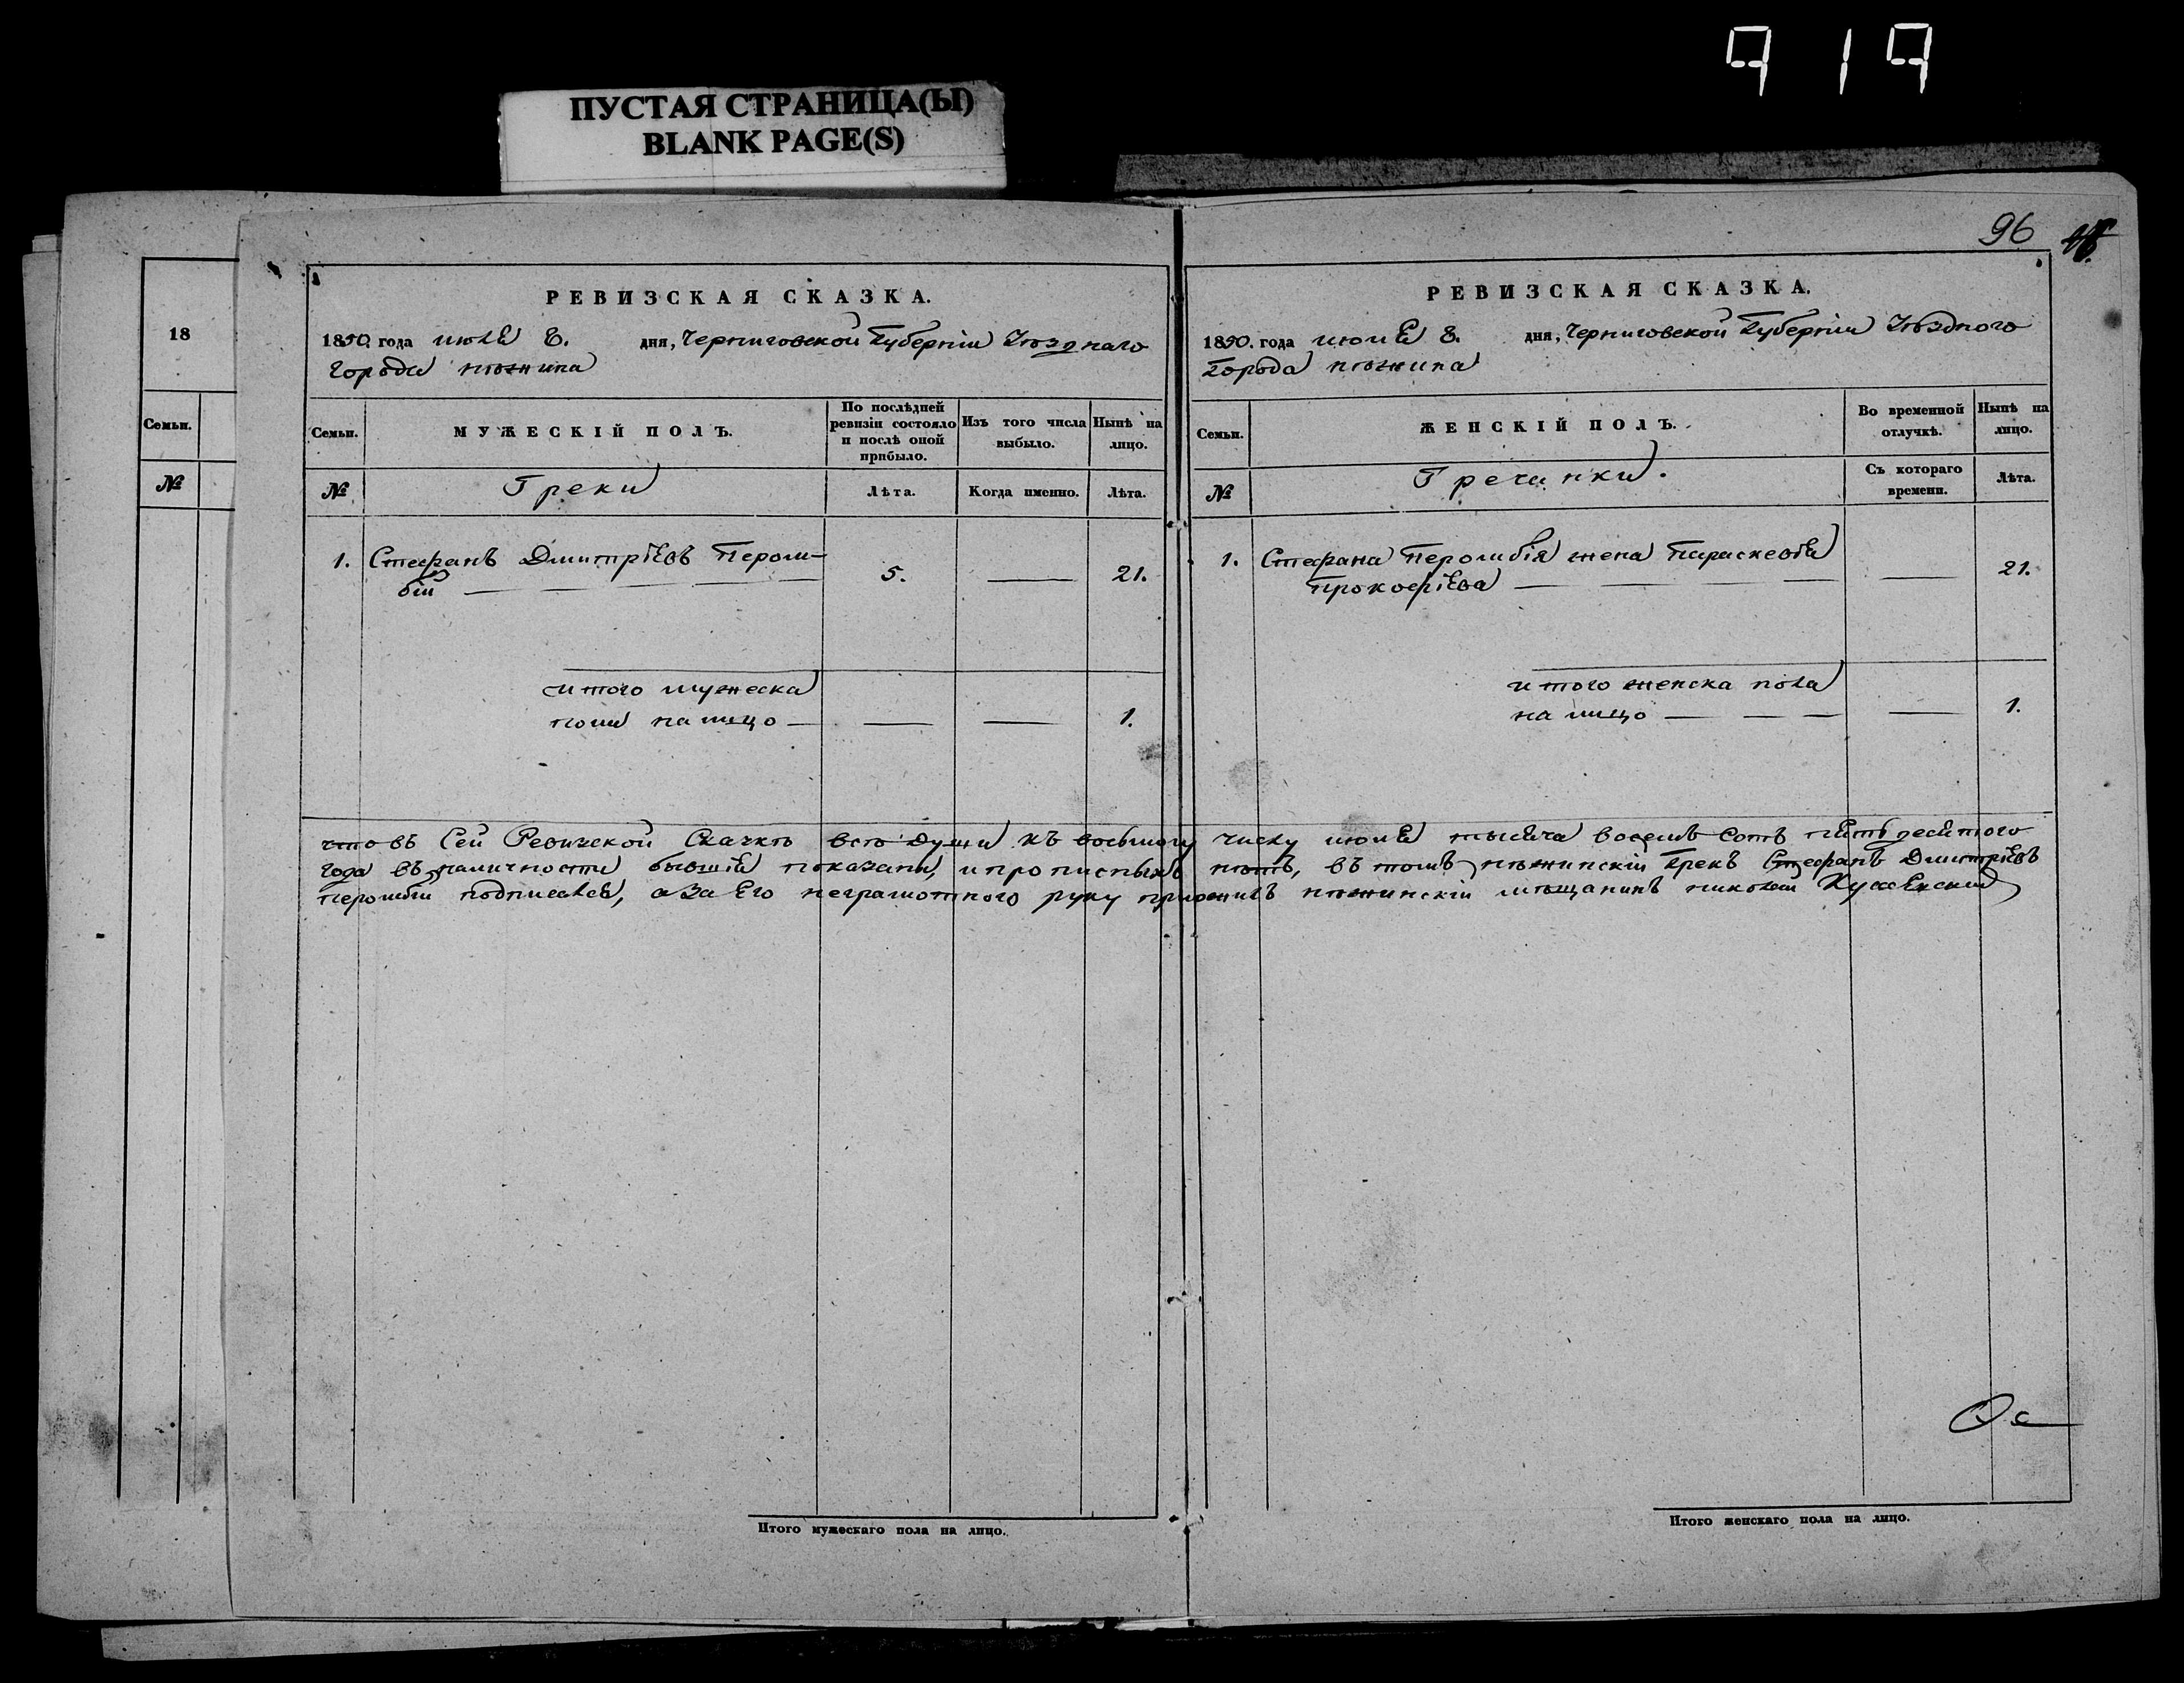 919
ПУСТАЯ СТРАНИЦА(Ы)
BLANK PAGE(S)
96
18
Семьи.
№
РЕВИЗСКАЯ СКАЗКА.
1850. года июля 8. дня, Черниговской Губерніи Уѣзднаго
города нѣжина
Семьи.
МУЖЕСКІЙ ПОЛЪ.
По послѣдней ревизіи состояло и послѣ оной прибыло.
Изъ того числа выбыло.
Нынѣ на лицо.
№
Греки
Лѣта.
Когда именно.
Лѣта.
1. Стефанъ Дмитріевъ Пероли-
бій — — — 5. — 21.
итого мужеска
пола на лицо — — — 1.
РЕВИЗСКАЯ СКАЗКА.
1850. года июля 8. дня, Черниговской Губерніи Уѣздного
города нѣжина
Семьи.
ЖЕНСКІЙ ПОЛЪ.
Во временной отлучкѣ.
Нынѣ на лицо.
№
Гречинки.
Съ котораго времени.
Лѣта.
1. Стефана Перолибія жена Параскевія
Прокофіева — — — — 21.
итого женска пола
на лицо — — — — 1.
что въ сей Ревизской Сказкѣ всѣ души къ восьмому числу июля тысяча восемъ сотъ пятьдесятого
года въ наличности бывшія показаны, и прописныхъ нѣтъ, въ томъ нѣжинскій Грекъ Стефанъ Дмитріевъ
перолибій подписался, а за Его неграмотного руку приложилъ нѣжинскій мѣщанинъ николай
Итого мужескаго пола на лицо.
Итого женскаго пола на лицо.